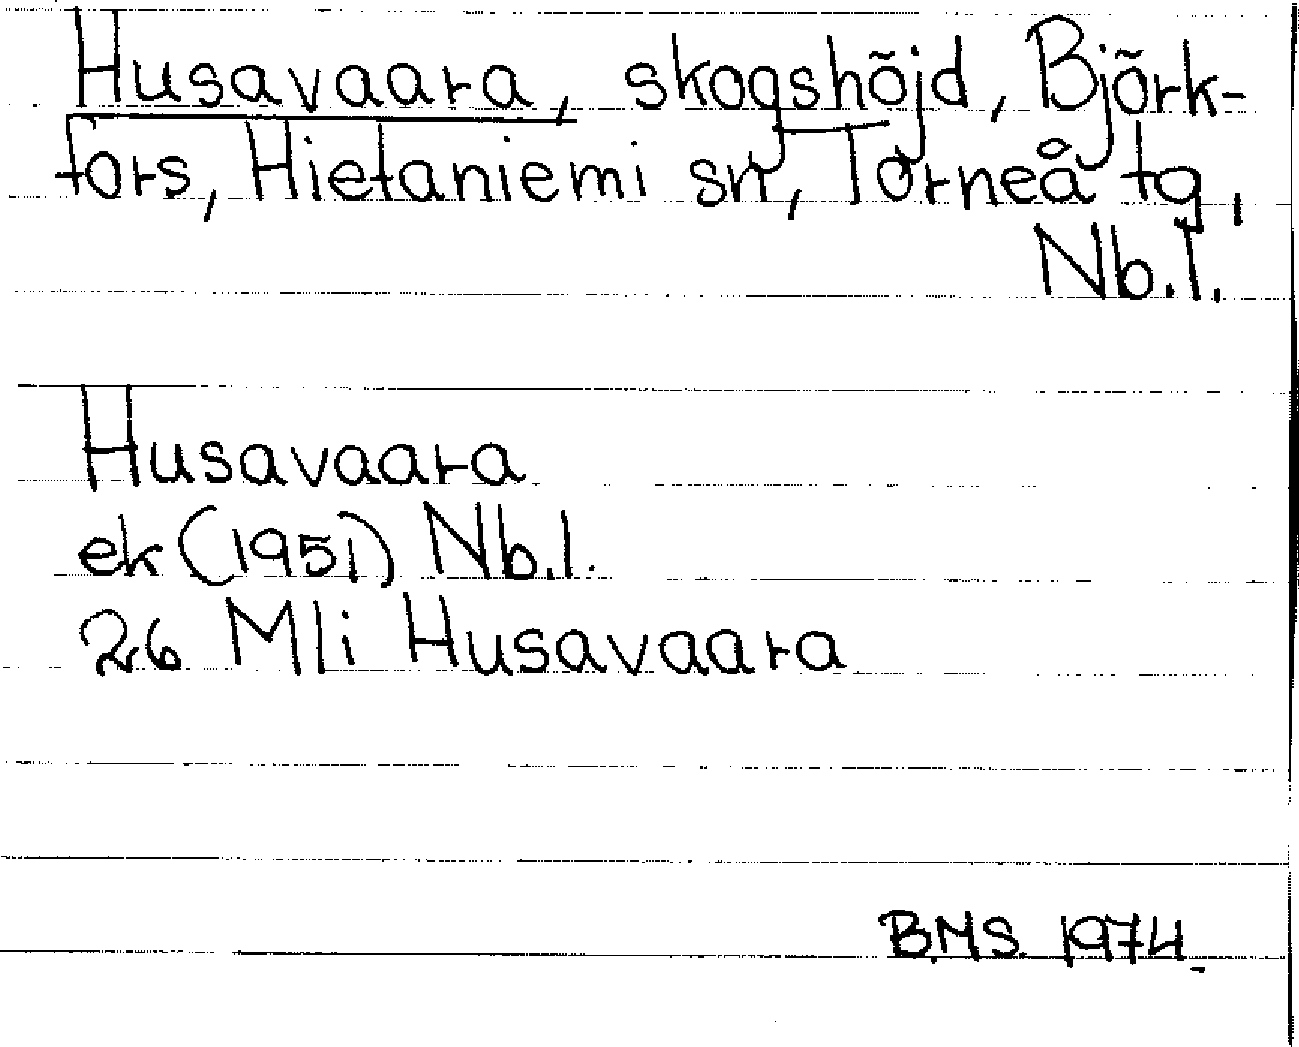 Husavaara, skogshöjd, Björk-
fors, Hietaniemi sn, Torneå tg,
Nb.l.
Husavaara
ek (1951) Nb.l.
26 Mli Husavaara
B.M.S. 1974